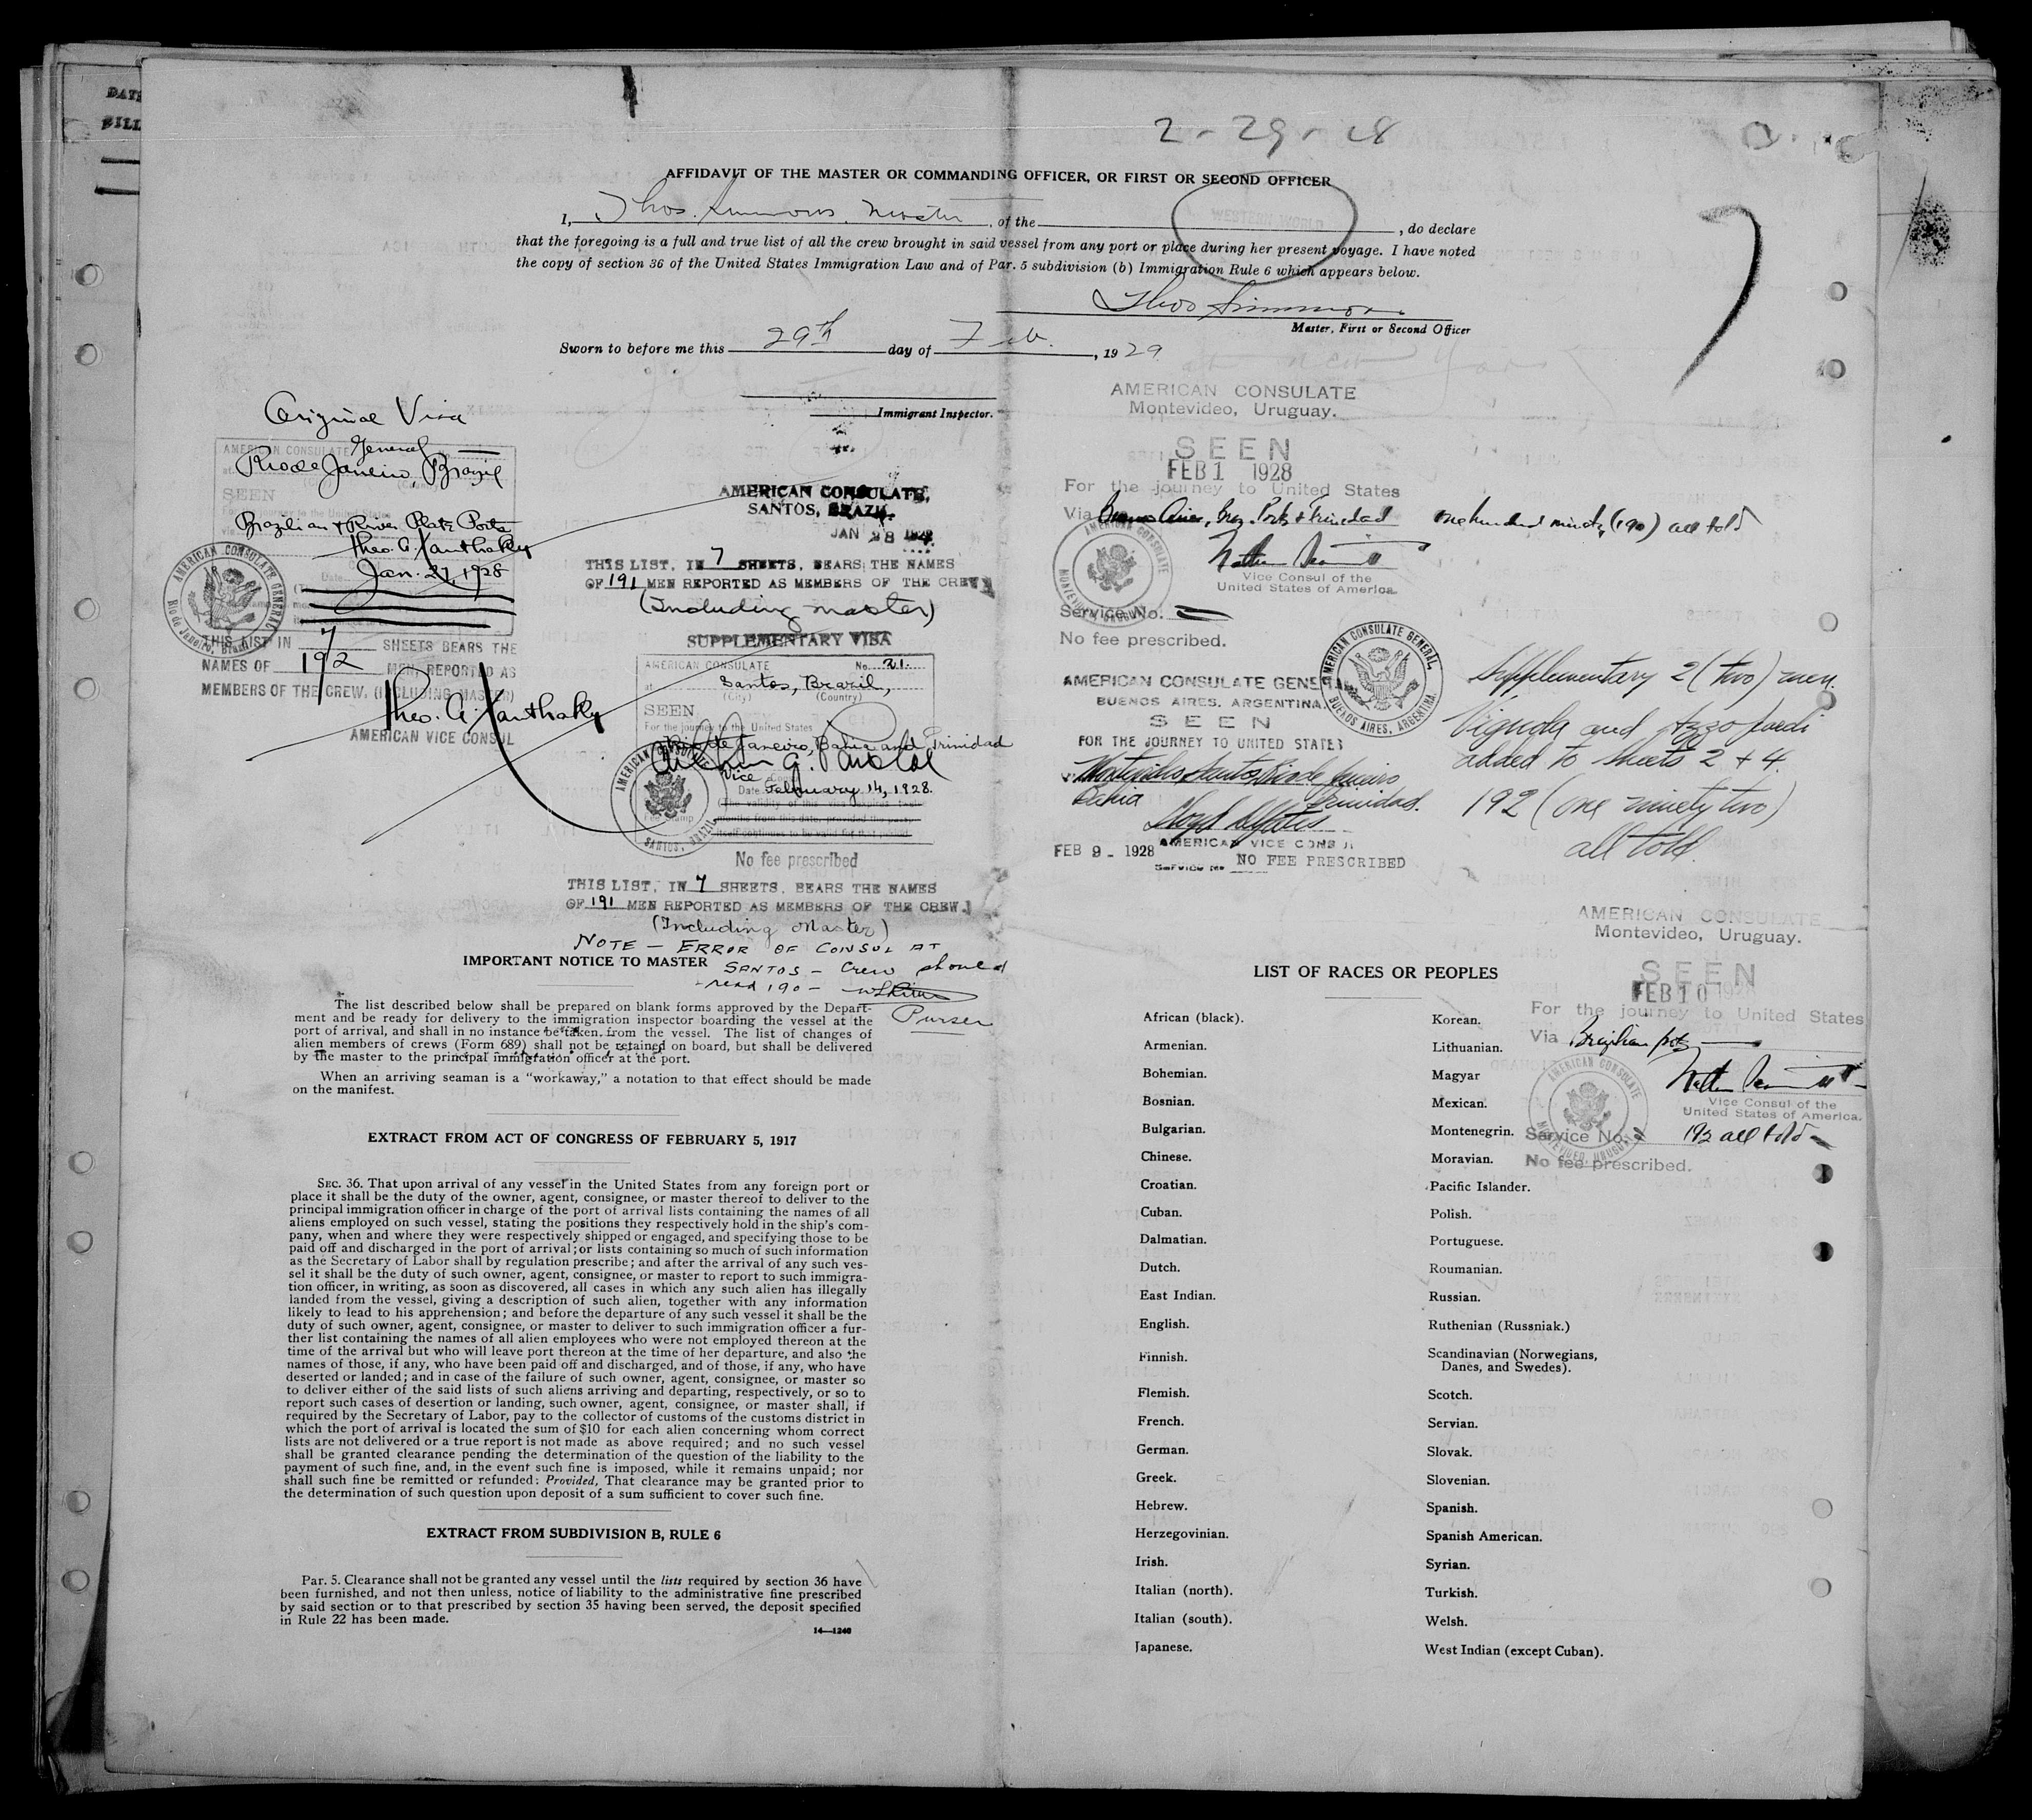 DATE
BILL
2 - 29 - 28
AFFIDAVIT OF THE MASTER OR COMMANDING OFFICER, OR FIRST OR SECOND OFFICER
I, Thos. Simmons, Master, of the WESTERN WORLD, do declare
that the foregoing is a full and true list of all the crew brought in said vessel from any port or place during her present voyage. I have noted
the copy of section 36 of the United States Immigration Law and of Par. 5 subdivision (b) Immigration Rule 6 which appears below.
Thos Simmons
Master, First or Second Officer
Sworn to before me this 29th day of Feb. , 19 29
Immigrant Inspector.
Original Visa
AMERICAN CONSULATE General
at Rio de Janeiro, Brazil
SEEN
For the journey to the United States
Brazilian & River Plate Ports
Theo. G. Xanthaky
Date Jan. 27, 1928
AMERICAN CONSULATE GENERAL
Rio de Janeiro, Brazil
THIS LIST IN 7 SHEETS BEARS THE
NAMES OF 192 MEN, REPORTED AS
MEMBERS OF THE CREW, (INCLUDING MASTER)
Theo. G. Xanthaky
AMERICAN VICE CONSUL
AMERICAN CONSULATE,
SANTOS, BRAZIL.
JAN 28 1928
THIS LIST, IN 7 SHEETS, BEARS THE NAMES
OF 191 MEN REPORTED AS MEMBERS OF THE CREW
(Including master)
SUPPLEMENTARY VISA
AMERICAN CONSULATE No. 21.
at Santos, Brazil,
(City) (Country)
SEEN
For the journey to the United States
Rio de Janeiro, Bahia and Trinidad
Vice
Date February 14, 1928.
(The validity of this visa expires
months from this date, provided the
itself continues to be valid for that period
Fee Stamp
AMERICAN CONSULATE
SANTOS, BRAZIL
No fee prescribed
THIS LIST, IN 7 SHEETS, BEARS THE NAMES
OF 191 MEN REPORTED AS MEMBERS OF THE CREW
(Including Master)
NOTE - ERROR OF CONSUL AT
SANTOS - Crew should
read 190 -
Purser
IMPORTANT NOTICE TO MASTER
The list described below shall be prepared on blank forms approved by the Depart-
ment and be ready for delivery to the immigration inspector boarding the vessel at the
port of arrival, and shall in no instance be taken from the vessel. The list of changes of
alien members of crews (Form 689) shall not be retained on board, but shall be delivered
by the master to the principal immigration officer at the port.
When an arriving seaman is a “workaway,” a notation to that effect should be made
on the manifest.
EXTRACT FROM ACT OF CONGRESS OF FEBRUARY 5, 1917
SEC. 36. That upon arrival of any vessel in the United States from any foreign port or
place it shall be the duty of the owner, agent, consignee, or master thereof to deliver to the
principal immigration officer in charge of the port of arrival lists containing the names of all
aliens employed on such vessel, stating the positions they respectively hold in the ship's com-
pany, when and where they were respectively shipped or engaged, and specifying those to be
paid off and discharged in the port of arrival; or lists containing so much of such information
as the Secretary of Labor shall by regulation prescribe; and after the arrival of any such ves-
sel it shall be the duty of such owner, agent, consignee, or master to report to such immigra-
tion officer, in writing, as soon as discovered, all cases in which any such alien has illegally
landed from the vessel, giving a description of such alien, together with any information
likely to lead to his apprehension; and before the departure of any such vessel it shall be the
duty of such owner, agent, consignee, or master to deliver to such immigration officer a fur-
ther list containing the names of all alien employees who were not employed thereon at the
time of the arrival but who will leave port thereon at the time of her departure, and also the
names of those, if any, who have been paid off and discharged, and of those, if any, who have
deserted or landed; and in case of the failure of such owner, agent, consignee, or master so
to deliver either of the said lists of such aliens arriving and departing, respectively, or so to
report such cases of desertion or landing, such owner, agent, consignee, or master shall, if
required by the Secretary of Labor, pay to the collector of customs of the customs district in
which the port of arrival is located the sum of $10 for each alien concerning whom correct
lists are not delivered or a true report is not made as above required; and no such vessel
shall be granted clearance pending the determination of the question of the liability to the
payment of such fine, and, in the event such fine is imposed, while it remains unpaid; nor
shall such fine be remitted or refunded: Provided, That clearance may be granted prior to
the determination of such question upon deposit of a sum sufficient to cover such fine.
EXTRACT FROM SUBDIVISION B, RULE 6
Par. 5. Clearance shall not be granted any vessel until the lists required by section 36 have
been furnished, and not then unless, notice of liability to the administrative fine prescribed
by said section or to that prescribed by section 35 having been served, the deposit specified
in Rule 22 has been made.
14—1240
AMERICAN CONSULATE
Montevideo, Uruguay.
SEEN
FEB 1 1928
For the journey to United States
Via Buenos Aires, Braz. Ports & Trinidad one hundred ninety (190) all told
Vice Consul of the
United States of America.
AMERICAN CONSULATE
MONTEVIDEO, URUGUAY
Service No.
No fee prescribed.
AMERICAN CONSULATE GENERAL
BUENOS AIRES, ARGENTINA.
SEEN
FOR THE JOURNEY TO UNITED STATES
Via Montevideo, Santos, Rio de Janeiro
Bahia Trinidad.
AMERICAN VICE CONSUL
FEB 9 - 1928
Service No NO FEE PRESCRIBED
AMERICAN CONSULATE GENERAL,
BUENOS AIRES, ARGENTINA.
Supplementary 2 (two) men.
Vignola and
added to sheets 2 + 4.
192 (one ninety two)
all told.
AMERICAN CONSULATE
Montevideo, Uruguay.
SEEN
FEB 10 1928
For the journey to United States
Via Brazilian pts
Vice Consul of the
United States of America.
AMERICAN CONSULATE
MONTEVIDEO, URUGUAY
Service No. 192 all told
No fee prescribed.
LIST OF RACES OR PEOPLES
African (black).
Armenian.
Bohemian.
Bosnian.
Bulgarian.
Chinese.
Croatian.
Cuban.
Dalmatian.
Dutch.
East Indian.
English.
Finnish.
Flemish.
French.
German.
Greek.
Hebrew.
Herzegovinian.
Irish.
Italian (north).
Italian (south).
Japanese.
Korean.
Lithuanian.
Magyar
Mexican.
Montenegrin.
Moravian.
Pacific Islander.
Polish.
Portuguese.
Roumanian.
Russian.
Ruthenian (Russniak.)
Scandinavian (Norwegians,
Danes, and Swedes).
Scotch.
Servian.
Slovak.
Slovenian.
Spanish.
Spanish American.
Syrian.
Turkish.
Welsh.
West Indian (except Cuban).